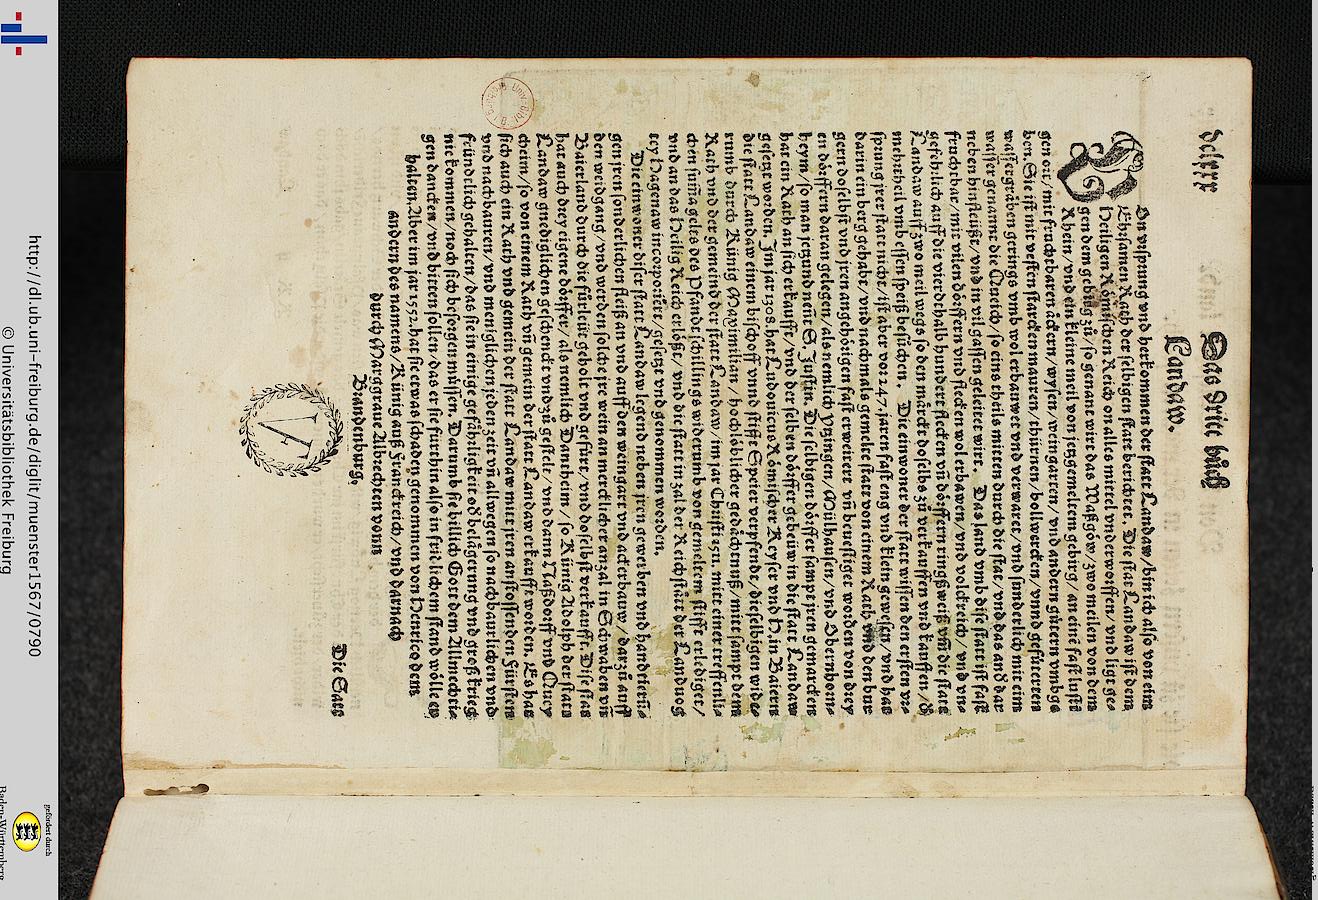 dclxxx
Das dritt bůch
Landaw.
Von vrsprung vnd herkommen der statt Landaw / bin ich also von eim
Ehrsamen Rath der selbigen statt berichtet. Die stat Landaw ist dem
Heiligen Römischen Reich on alles mittel vnderworffen / vnd ligt ge-
gen dem gebirg zů / so genant wirt das Waßgöw / zwo meilen von dem
Rhein / vnd ein kleine meil von jetzgemeltem gebirg / an eine fast lusti-
gen ort / mit fruchtbaren äckern / wysen / weingarten / vnd andern gütern vmbge-
ben. Sie ist mit vesten starcken mauren / thürnen / bollwercken / vnnd gefütterten
wassergräben gerings vmb wol erbauwet vnd verwaret / vnd sunderlich mit eim
wasser genannt die Queich / so eins theils mitten durch die stat / vnd das and dar
neben hinfleußt / vnd in vil gassen geleitet wirt. Das land vmb dise statt ist fast
fruchtbar / mit vilen dörffern vnd flecken wol erbawen / vnd volckreich / vnd vn-
gefehrlich auff die vierdhalb hundert flecken vñ dörffern ringßweiß vmb die statt
Landaw auff zwo meil wegs so den märckt do selbs zů verkauffen vnd kauffen / ð
mehrtheil vmb essen speiß besůchen. Die einwoner der stat wissen den ersten vr-
sprung jrer statt nicht / ist aber vor 247. jaren fast eng vnd klein gewesen / vnd hat
darin ein berg gehabt / vnd nachmals gemelte statt von einem Rath vnd den bur
gern doselbst vnd jren angehörigen fast erweitert vñ beuestiget worden von drey
en dörffern daran gelegen / als nemlich Ytzingen / Mülhausen / vnd Obernborn-
heym / so man jetzund nent S. Justin. Die selbigen dörffer sampt jren gemarcken
hat ein Rath an sich erkaufft / vnd der selben dörffer gebeüw in die statt Landaw
gesetzt worden. Im jar 1308. hat Ludouicus Römischer Keyser vnd H. in Baiern
die statt Landaw einem bischoff vnnd stifft Speier verpfendt / dieselbigen wide-
rumb durch Künig Maximilian / hochlöblicher gedächtnuß / mit sampt dem
Rath vnd der gemeind der statt Landaw / im jar Christi 1511. mitt einer treffenli-
chen summa gelts des Pfandtschillings widerumb von gemeltem stifft erlediget /
vnd an das Heilig Reich erlößt / vnd die statt in zal der Reichstätt der Landuog
tey Hagenaw incorporiert / gesetzt vnd genommen worden.
Die einwoner diser statt Landaw legend neben jren gewerben vnd handtierũ-
gen jren sonderlichen fleiß an vnd auff den weingart vnd ackerbauw / darzů auff
den weidgang / vnd werden solche jre wein an mercklicher anzal in Schwaben vñ
Baierland durch die fürleüt geholt vnd gefürt / vnd doselbst verkaufft. Dise stat
hat auch drey eigene dörffer / als nemlich Dantheim / so Künig Adolph der statt
Landaw gnediglichen geschenckt vnd zů gestelt / vnd dann Naßdorff vnd Quey
cheim / so von einem Rath vñ gemein der statt Landaw erkaufft worden. Es hat
sich auch ein Rath vnd gemein der statt Landaw mit jren anstossenden Fürsten
vnd nachbauren / vnd menigklichen jeden zeit vñ allwegen so nachbaurlichen vnd
fründtlich gehalten / das sie in einige gefährligkeit od belägerung vnd groß krieg
nie kommen / noch sich besorgen müssen. Darumb sie billich Gott dem Allmechti-
gen dancken / vnd bitten sollen / das er sie fürthin also in fridlichem stand wölle er
halten. Aber im jar 1552. hat sie etwas schaden genommen von Henrico dem
andern des namens / Künig auß Franckreich / vnd darnach
durch Marggraue Albrechten vonn
Brandenburg.
Die Statt
http://dl.ub.uni-freiburg.de/diglit/muenster1567/0790
© Universitätsbibliothek Freiburg
gefördert durch
Baden-Württemberg